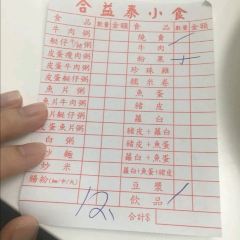 合益泰小食
食品 數量 金額 食品 數量 金額
牛肉粥 燒賣
艇仔粥 牛肉
皮蛋瘦肉粥 粉果
皮蛋牛肉粥 珍珠雞
皮蛋艇仔粥 糯米卷
魚片粥 魚蛋
魚片牛肉粥 豬皮
魚片艇仔粥 蘿白
皮蛋魚片粥 豬皮+蘿白
白粥 豬皮+魚蛋
炒麵 蘿白+魚蛋
炒米 蘿白+魚蛋+豬皮
腸粉 豆漿
飲品
12 合計$